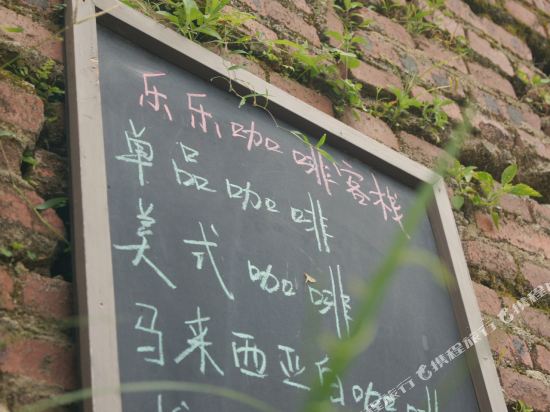 乐乐咖啡客栈
单品咖啡
美式咖啡
马来西亚白咖啡
携程旅行